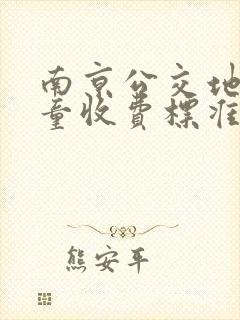 南京公交地
童收费標准
熊安平